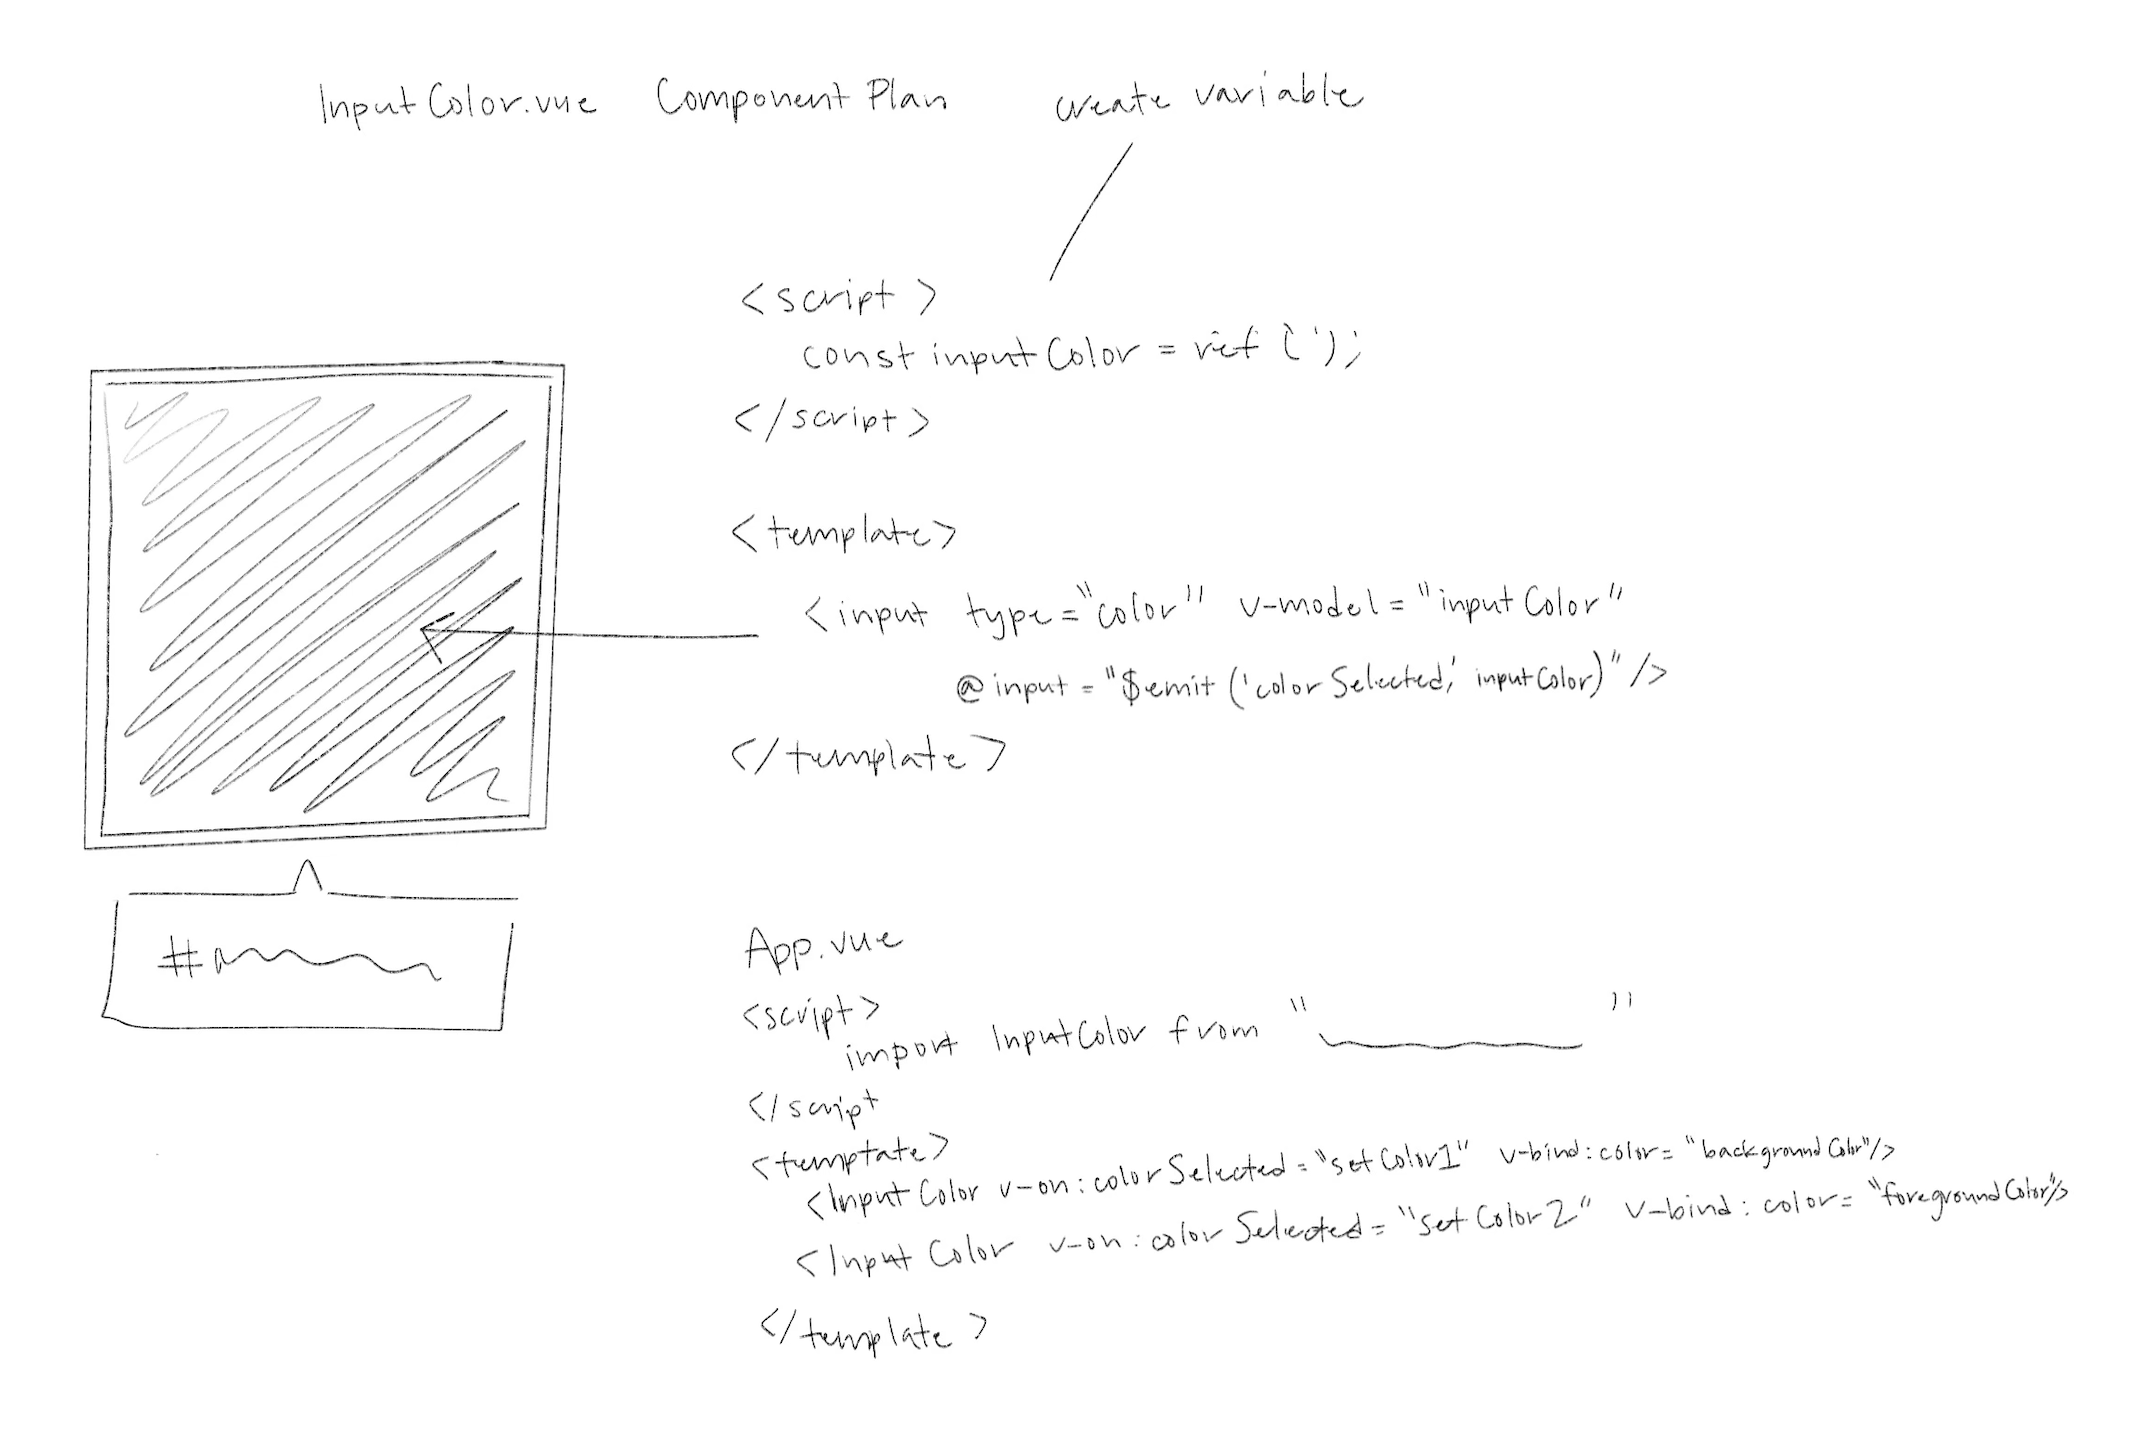 InputColor.vue Component Plan
create variable
<script>
const inputColor = ref (');
</script>
<template>
<input type="color" v-model="inputColor"
@input="$emit('colorSelected', inputColor)"/>
</template>
#
App.vue
<script>
import InputColor from " "
</script
<temptate>
<InputColor v-on:colorSelected="setColor1" v-bind:color="backgroundColor"/>
<InputColor v-on:colorSelected="setColor2" v-bind:color="foregroundColor"/>
</template>